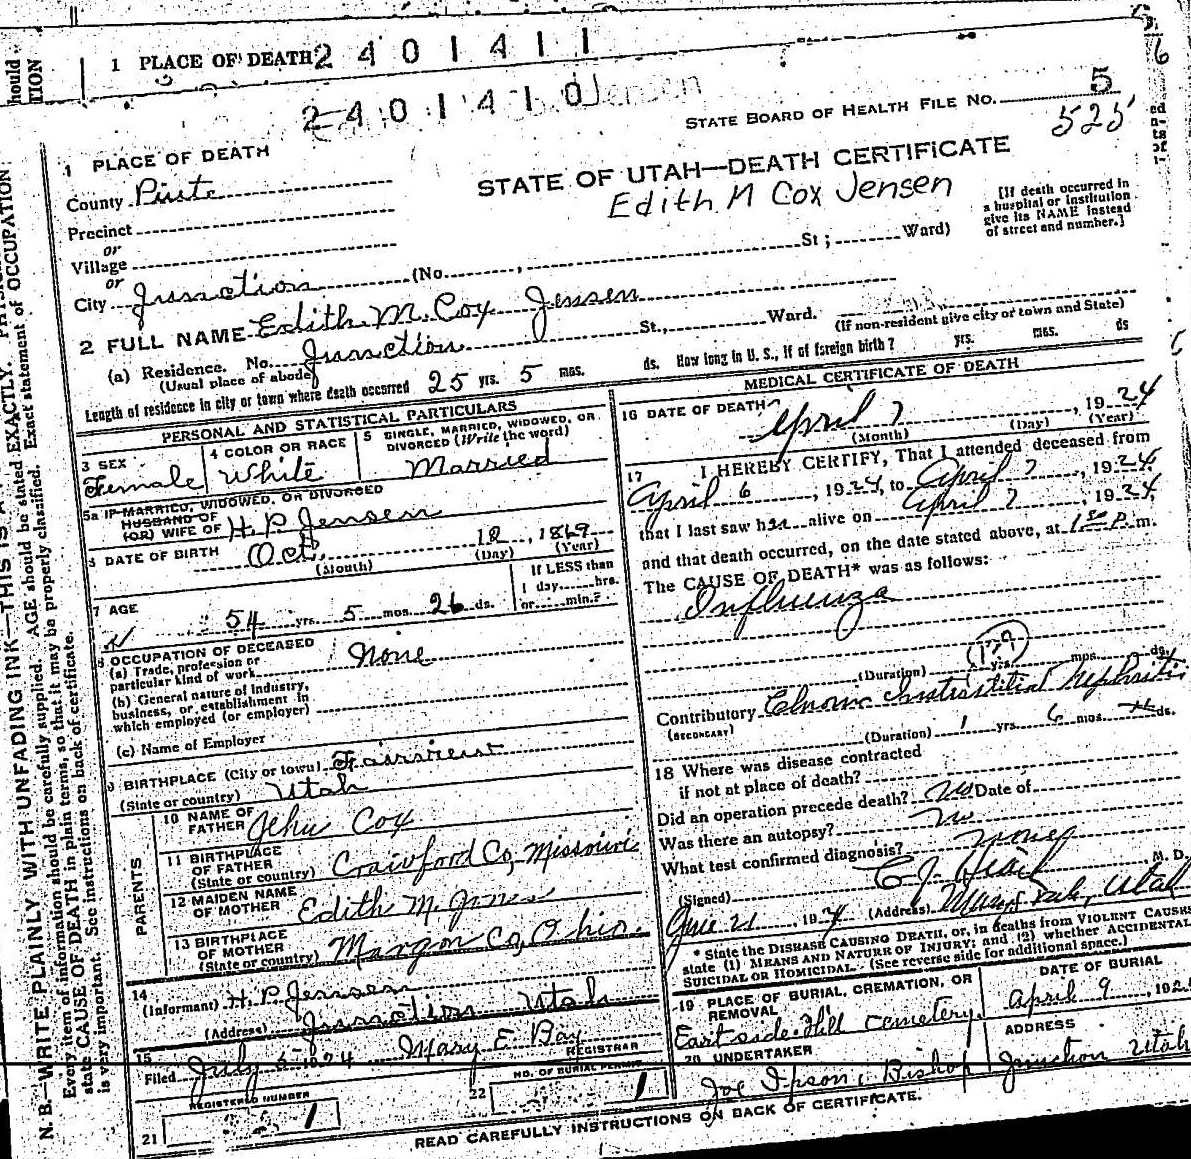 hould
TION
1 PLACE OF DEATH 2 4 0 1 4 1 1
2 4 0 1 4 1 0 Jensen
STATE BOARD OF HEALTH FILE NO. 5
525
1 PLACE OF DEATH
County Piute
STATE OF UTAH—DEATH CERTIFICATE
Edith M Cox Jensen
[If death occurred in
a hospital or institution
give its NAME instead
of street and number.]
Precinct
or
Village
or
City Junction (No. , St ; Ward)
2 FULL NAME Edith M. Cox Jensen
(a) Residence. No. Junction St., Ward.
(Usual place of abode) (If non-resident give city or town and State)
Length of residence in city or town where death occurred 25 yrs. 5 mos. ds. How long in U. S., if of foreign birth? yrs. mos. ds
PERSONAL AND STATISTICAL PARTICULARS
3 SEX Female
4 COLOR OR RACE White
5 SINGLE, MARRIED, WIDOWED, OR
DIVORCED (Write the word)
Married
5a IF MARRIED, WIDOWED, OR DIVORCED
HUSBAND OF
(OR) WIFE OF H. P. Jensen
DATE OF BIRTH Oct. 12, 1869
(Month) (Day) (Year)
7 AGE
54 yrs. 5 mos. 26 ds.
If LESS than
1 day, hrs.
or min.?
8 OCCUPATION OF DECEASED
(a) Trade, profession or
particular kind of work None
(b) General nature of industry,
business, or establishment in
which employed (or employer)
(c) Name of Employer
9 BIRTHPLACE (City or town) Fairview
(State or country) Utah
PARENTS
10 NAME OF
FATHER Jehu Cox
11 BIRTHPLACE
OF FATHER
(State or country) Crawford Co, Missouri
12 MAIDEN NAME
OF MOTHER Edith M.
13 BIRTHPLACE
OF MOTHER
(State or country) Co, Ohio.
14
(Informant) H. P. Jensen
(Address) Junction Utah
15
Filed July 1924 Mary E. Bay
REGISTRAR
REGISTERED NUMBER
21 1
NO. OF BURIAL PERMIT
22 1
MEDICAL CERTIFICATE OF DEATH
16 DATE OF DEATH
April 7, 1924
(Month) (Day) (Year)
17 I HEREBY CERTIFY, That I attended deceased from
April 6, 1924, to April 7, 1924,
that I last saw her alive on April 7, 1924,
and that death occurred, on the date stated above, at 1 30 P. m.
The CAUSE OF DEATH* was as follows:
Influenza
(Duration) yrs. mos. ds.
Contributory Chronic Interstitial Nephritis
(SECONDARY)
(Duration) 1 yrs. 6 mos. ds.
18 Where was disease contracted
if not at place of death?
Did an operation precede death? no Date of
Was there an autopsy? no
What test confirmed diagnosis? none
(Signed) M. D.
21, 1924 (Address) Utah
* State the DISEASE CAUSING DEATH, or, in deaths from VIOLENT CAUSES
state (1) MEANS AND NATURE OF INJURY; and (2) whether ACCIDENTAL
SUICIDAL OR HOMICIDAL. (See reverse side for additional space.)
19 PLACE OF BURIAL, CREMATION, OR
REMOVAL
East side Hill Cemetery
DATE OF BURIAL
April 9, 192
20 UNDERTAKER
Joe Ipson, Bishop
ADDRESS
Junction Utah
READ CAREFULLY INSTRUCTIONS ON BACK OF CERTIFICATE.
N. B.—WRITE PLAINLY WITH UNFADING INK—THIS IS A
Every item of information should be carefully supplied. AGE should be stated EXACTLY.
state CAUSE OF DEATH in plain terms, so that it may be properly classified. Exact statement of OCCUPATION
is very important. See instructions on back of certificate.